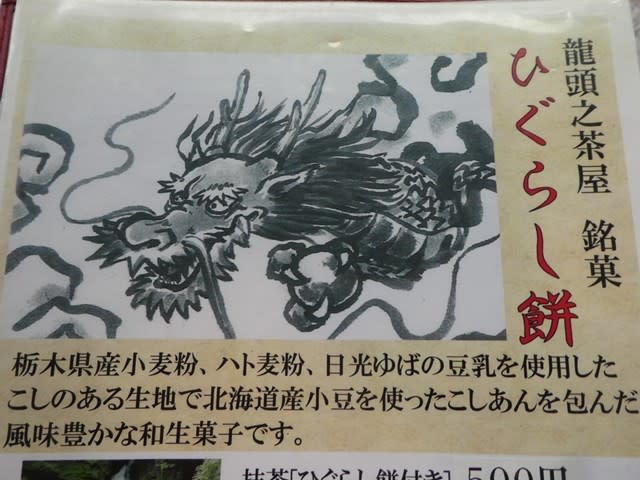 龍頭之茶屋 銘菓
ひぐらし餅
栃木県産小麦粉、ハト麦粉、日光ゆばの豆乳を使用した
こしのある生地で北海道産小豆を使ったこしあんを包んだ
風味豊かな和生菓子です。
抹茶[ひぐらし餅付き] 500円